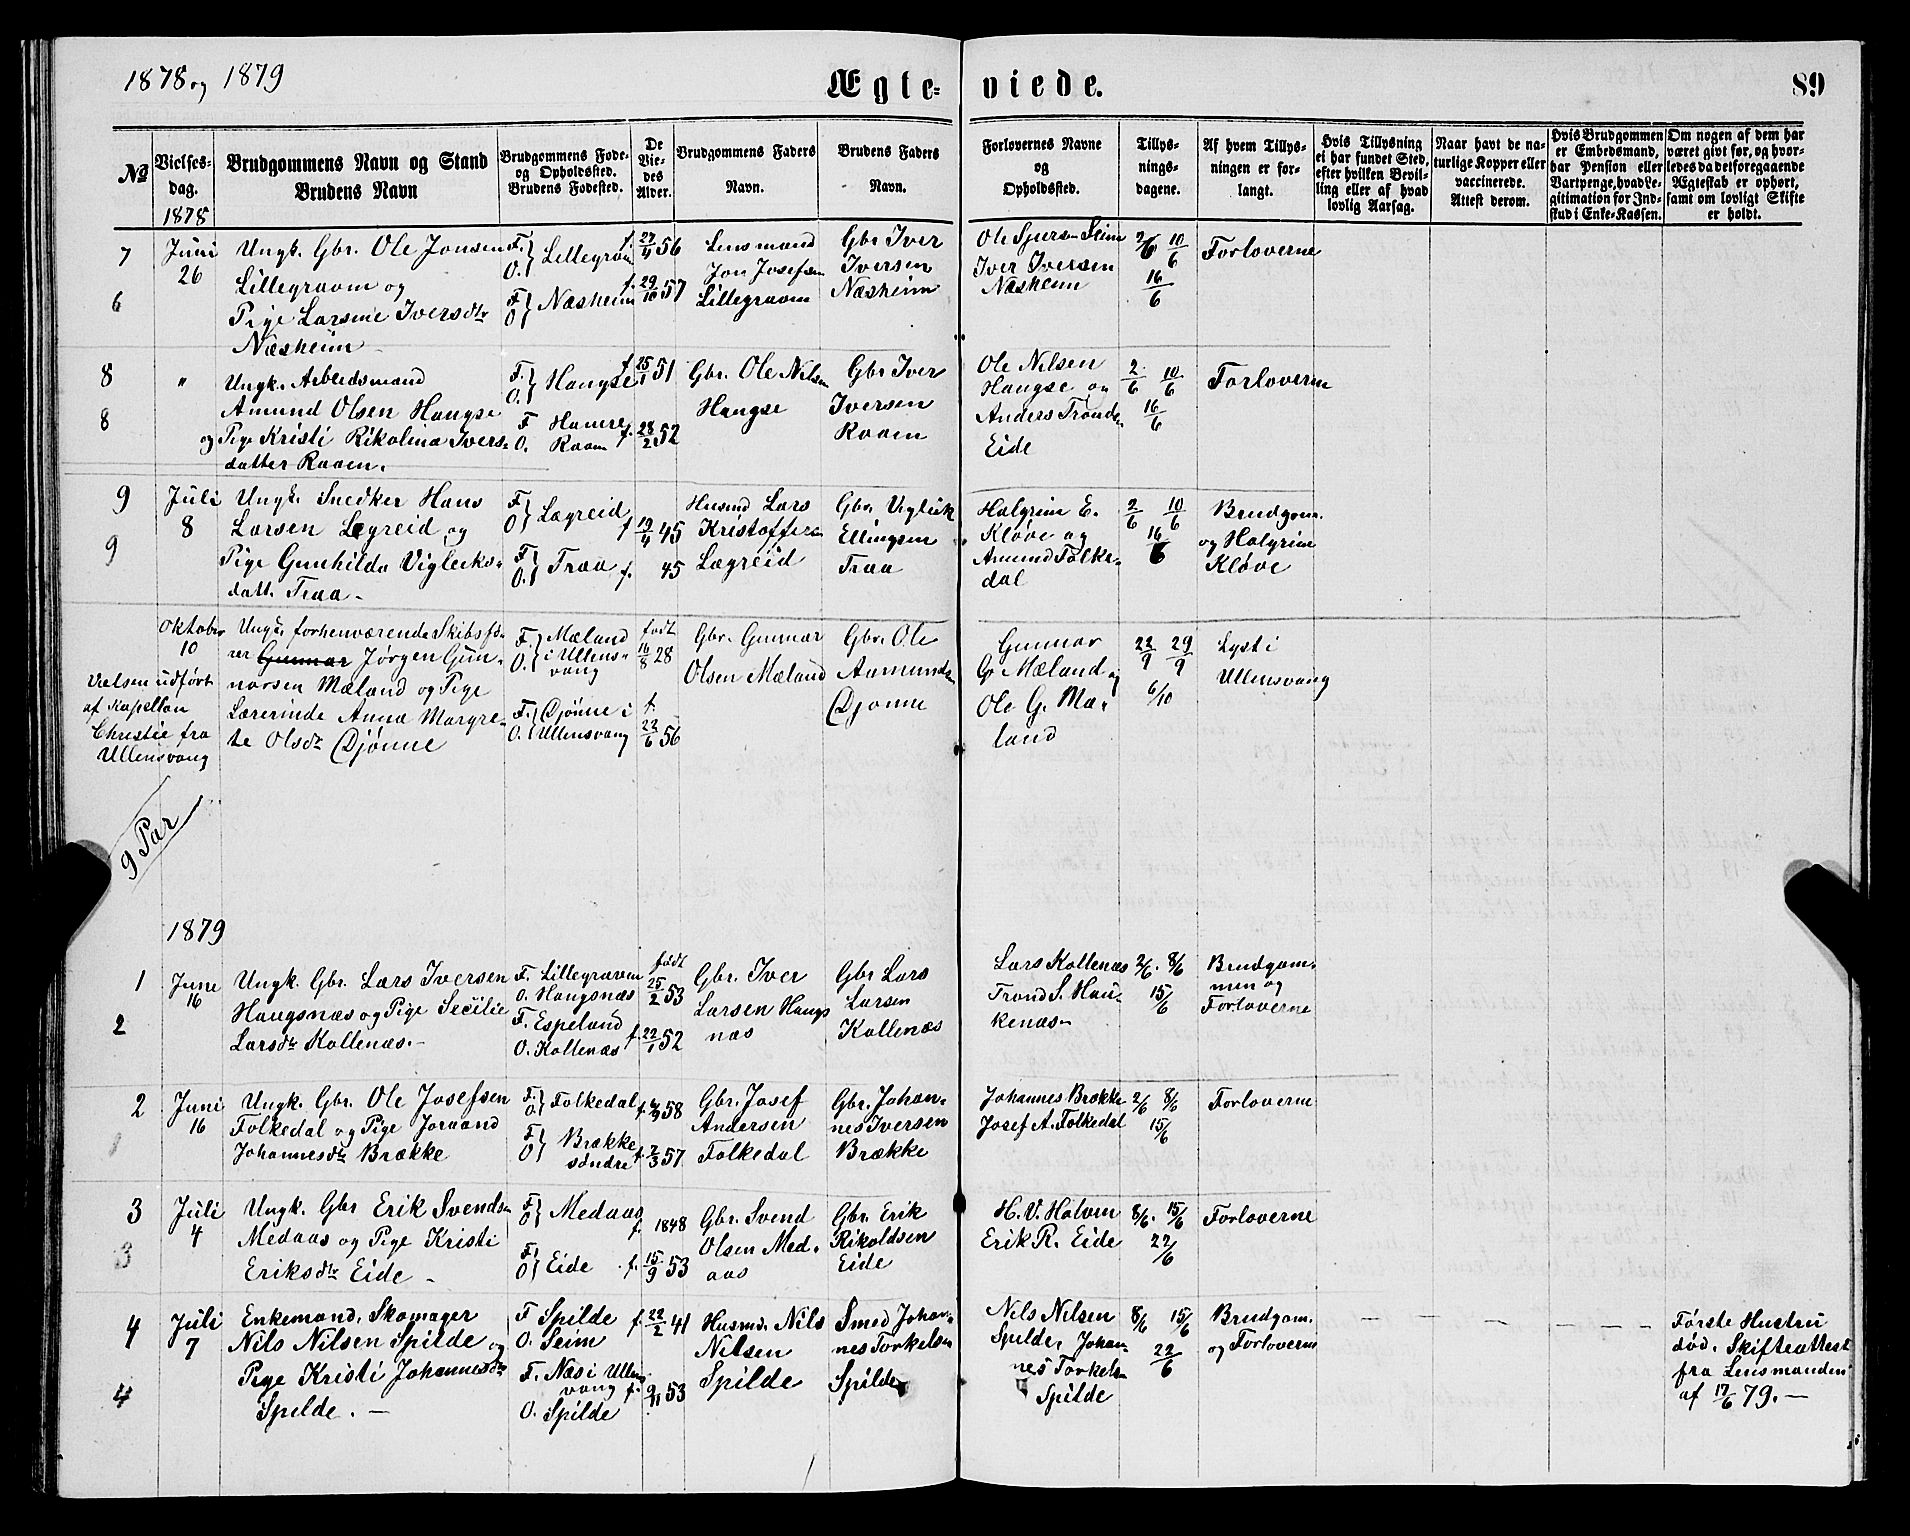 1878 og 1879
Ægte-viede.
89
No
Vielses-dag. 1878
Brudgommens Navn og Stand Brudens Navn
Brudgommens Føde- og Opholdssted. Brudens Fødested.
De Vie-des Alder.
Brudgommens Faders Navn.
Brudens Faders Navn.
Forlovernes Navne og Opholdssted.
Tillys-nings-dagene.
Af hvem Tillys-ningen er for-langt.
Hvis Tillysning ei har fundet Sted, efter hvilken Bevil-ling eller af hvad lovlig Aarsag.
Naar havt de na-turlige Kopper eller vaccinerede. Attest derom.
Hvis Brudgommen er Embedsmand, har Pension eller Vartpenge, hvad Le-gitimation for Ind-skud i Enke-Kassen.
Om nogen af dem har været givt før, og hvor-ledes da det foregaaende Ægteskab er ophørt, samt om lovligt Skifte er holdt.
7
6
Juni 26
Ungk. Gbr. Ole Jonsen
Lillegraven og
Pige Larsine Iversdtr
Næsheim
F. O. Lillegraven
F O Næsheim
f. 27/4 56
f. 29/10 57
Lensmand
Jon Josefsen
Lillegraven
Gbr Iver
Iversen
Næsheim
Ole Sjurs. Seim
Iver Iversen
Næsheim
2/6 10/6
16/6
Forloverne
8
8
"
Ungk. Arbeidsmand
Amund Olsen Haugse
og Pige Kristi Rikolina Ivers-
datter Raaen.
F. O. Haugse
F Hamre
O. Raaen
f 25/1 51
f. 28/2 52
Gbr. Ole Nilsen
Haugse
Gbr Iver
Iversen
Raaen
Ole Nilsen
Haugse og
Anders Trondsen
Eide
2/6 10/6
16/6
Forloverne
9
9
Juli 8
Ungk. Snedker Hans
Larsen Lægreid og
Pige Gunhilda Vigleiks-
datt. Traa -
F O Lægreid
F. O. Traa
f 19/4 45
f. 45
Husmd Lars
Kristoffersen
Lægreid
Gbr. Vigleik
Ellingsen
Traa
Halgrim E.
Kløve og
Amund Folke-
dal
2/6 10/6
16/6
Brudgom.
og Halgrim
Kløve
Oktober
10
Vielsen udført
af Kapellan
Christie fra
Ullensvang
Ungk. forhenværende Skibsfø-
rer Gunnar Jørgen Gun-
narsen Mæland og Pige
Lærerinde Anna Margre-
te Olsdr Djønne
F. O. Mæland
i Ullens-
vang
F. O. Djønne i
Ullensvang
født
16/8 28
f. 22/6 56
Gbr. Gunnar
Olsen Mæland
Gbr. Ole
Aamundsen
Djønne
Gunnar
G. Mæland og
Ole G. Mæ-
land
22/9 29/9
6/10
Lyst i
Ullensvang
9 Par
1879
1
2
June
16
Ungk. Gbr. Lars Iversen
Haugsnæs og Pige Secilie
Larsdtr Kollenæs.-
F. Lillegraven
O. Haugsnæs
F. Espeland
O. Kollenæs
født
25/2 53
f. 22/1 52
Gbr. Iver
Larsen Haugs
næs
Gbr Lars
Larsen
Kollenæs
Lars Kollenæs
Trond S. Hau-
kenæs-
2/6. 8/6
15/6
Brudgom-
men og
Forloverne
2
1
Juni
16
Ungk. Gbr. Ole Josefsen
Folkedal og Pige Joraand
Johannesdtr Brække
F. O Folkedal
F O Brække
søndre
58
f. 2/3 57
Gbr. Josef
Andersen
Folkedal
Gbr. Johan-
nes Iversen
Brække
Johannes Brække
Josef A. Folkedal
2/6 8/6
15/6
Forloverne
3
3
Juli
4
Ungk. Gbr Erik Svendsen
Medaas og Pige Kristi
Eriksdtr Eide -
F O Medaas
F. O Eide
f. 1848
f. 15/9 53
Gbr. Svend
Olsen Med-
aas
Gbr. Erik
Rikoldsen
Eide
H. V. Halven
Erik R. Eide
8/6. 15/6
22/6
Forloverne
4
4
Juli
7
Enkemand, Skomager
Nils Nilsen Spilde og
Pige Kristi Johannesdtr
Spilde. -
F Spilde
O. Seim
F. Næs i Ullens
vang
O. Spilde
f. 22/2 41
f. 9/11 53
Husmd. Nils
Nilsen
Spilde
Smed Johan-
nes Torkelsen
Spilde
Nils Nilsen
Spilde, Johan-
nes Torkels.
Spilde
8/6 15/6
22/6
Brudgom.
og Forloverne
Første Hustru
død. Skifteattest
fra Lensmanden
af 17/6 79. -